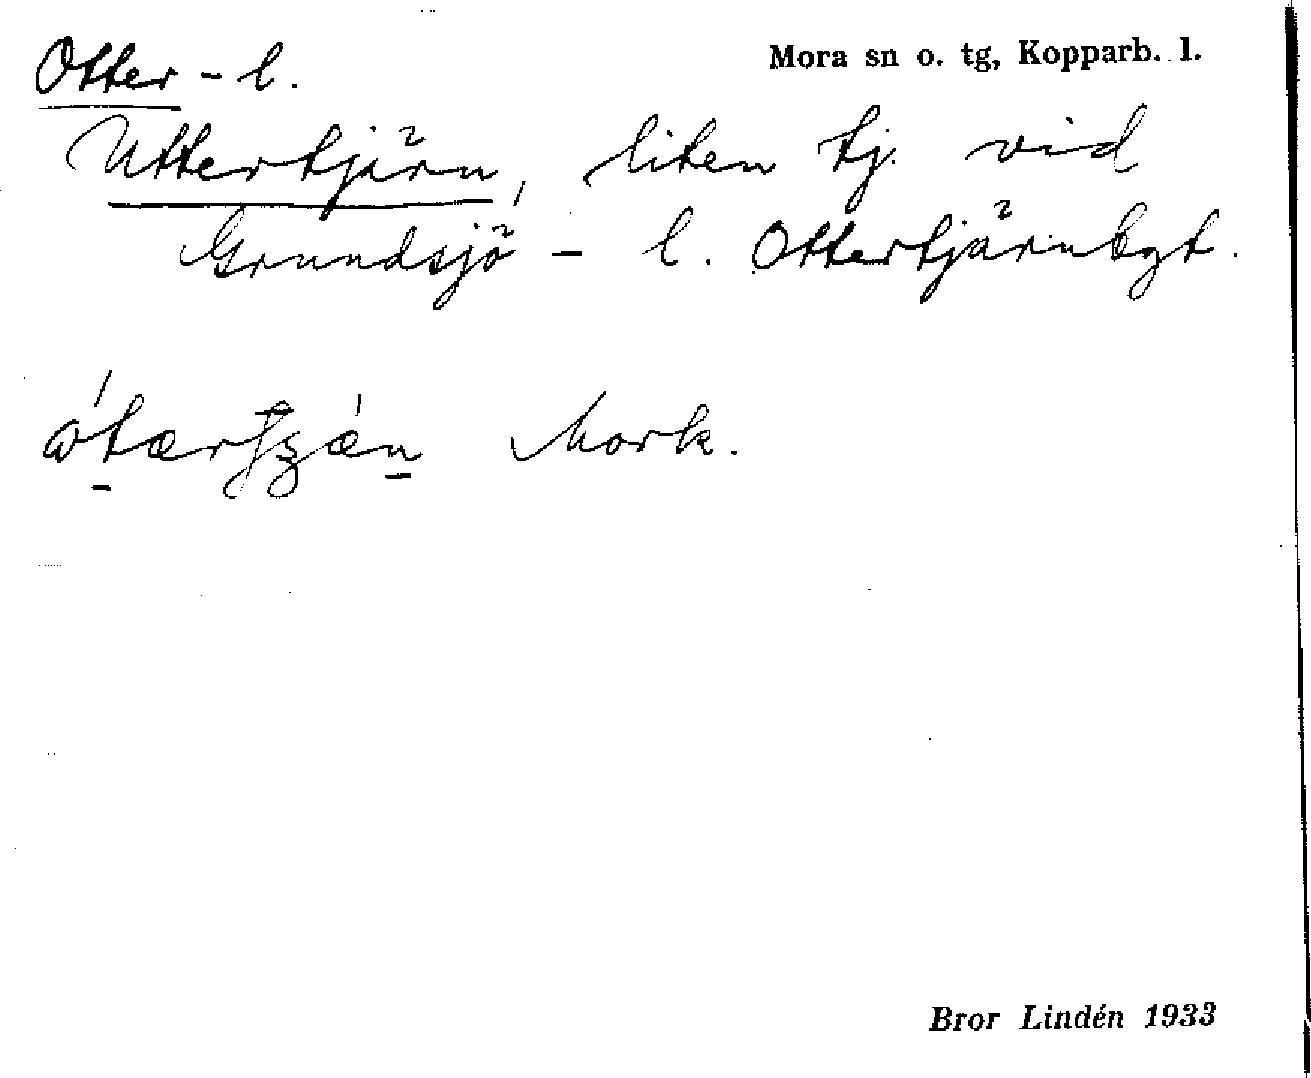 Otter - l.
Mora sn o. tg, Kopparb. l.
Uttertjärn, liten tj. vid
Grundsjö - l. Ottertjärnbgt.
Mork.
Bror Lindén 1933